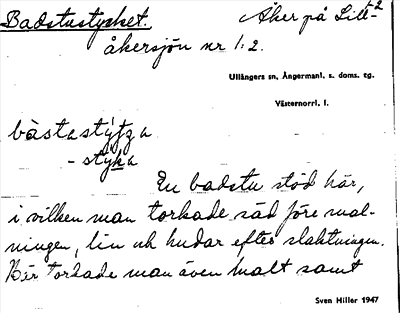 Badstustycket. Åker på Lill-2
åkersjön nr 1:2.
Ullångers sn, Ångermanl. s. doms. tg.
Västernorrl. l.
bàstastýtza
- stýka
En badstu stod här,
i vilken man torkade säd före mal-
ningen, lin och hudar efter slaktningen.
Här torkade man även malt samt
Sven Hiller 1947